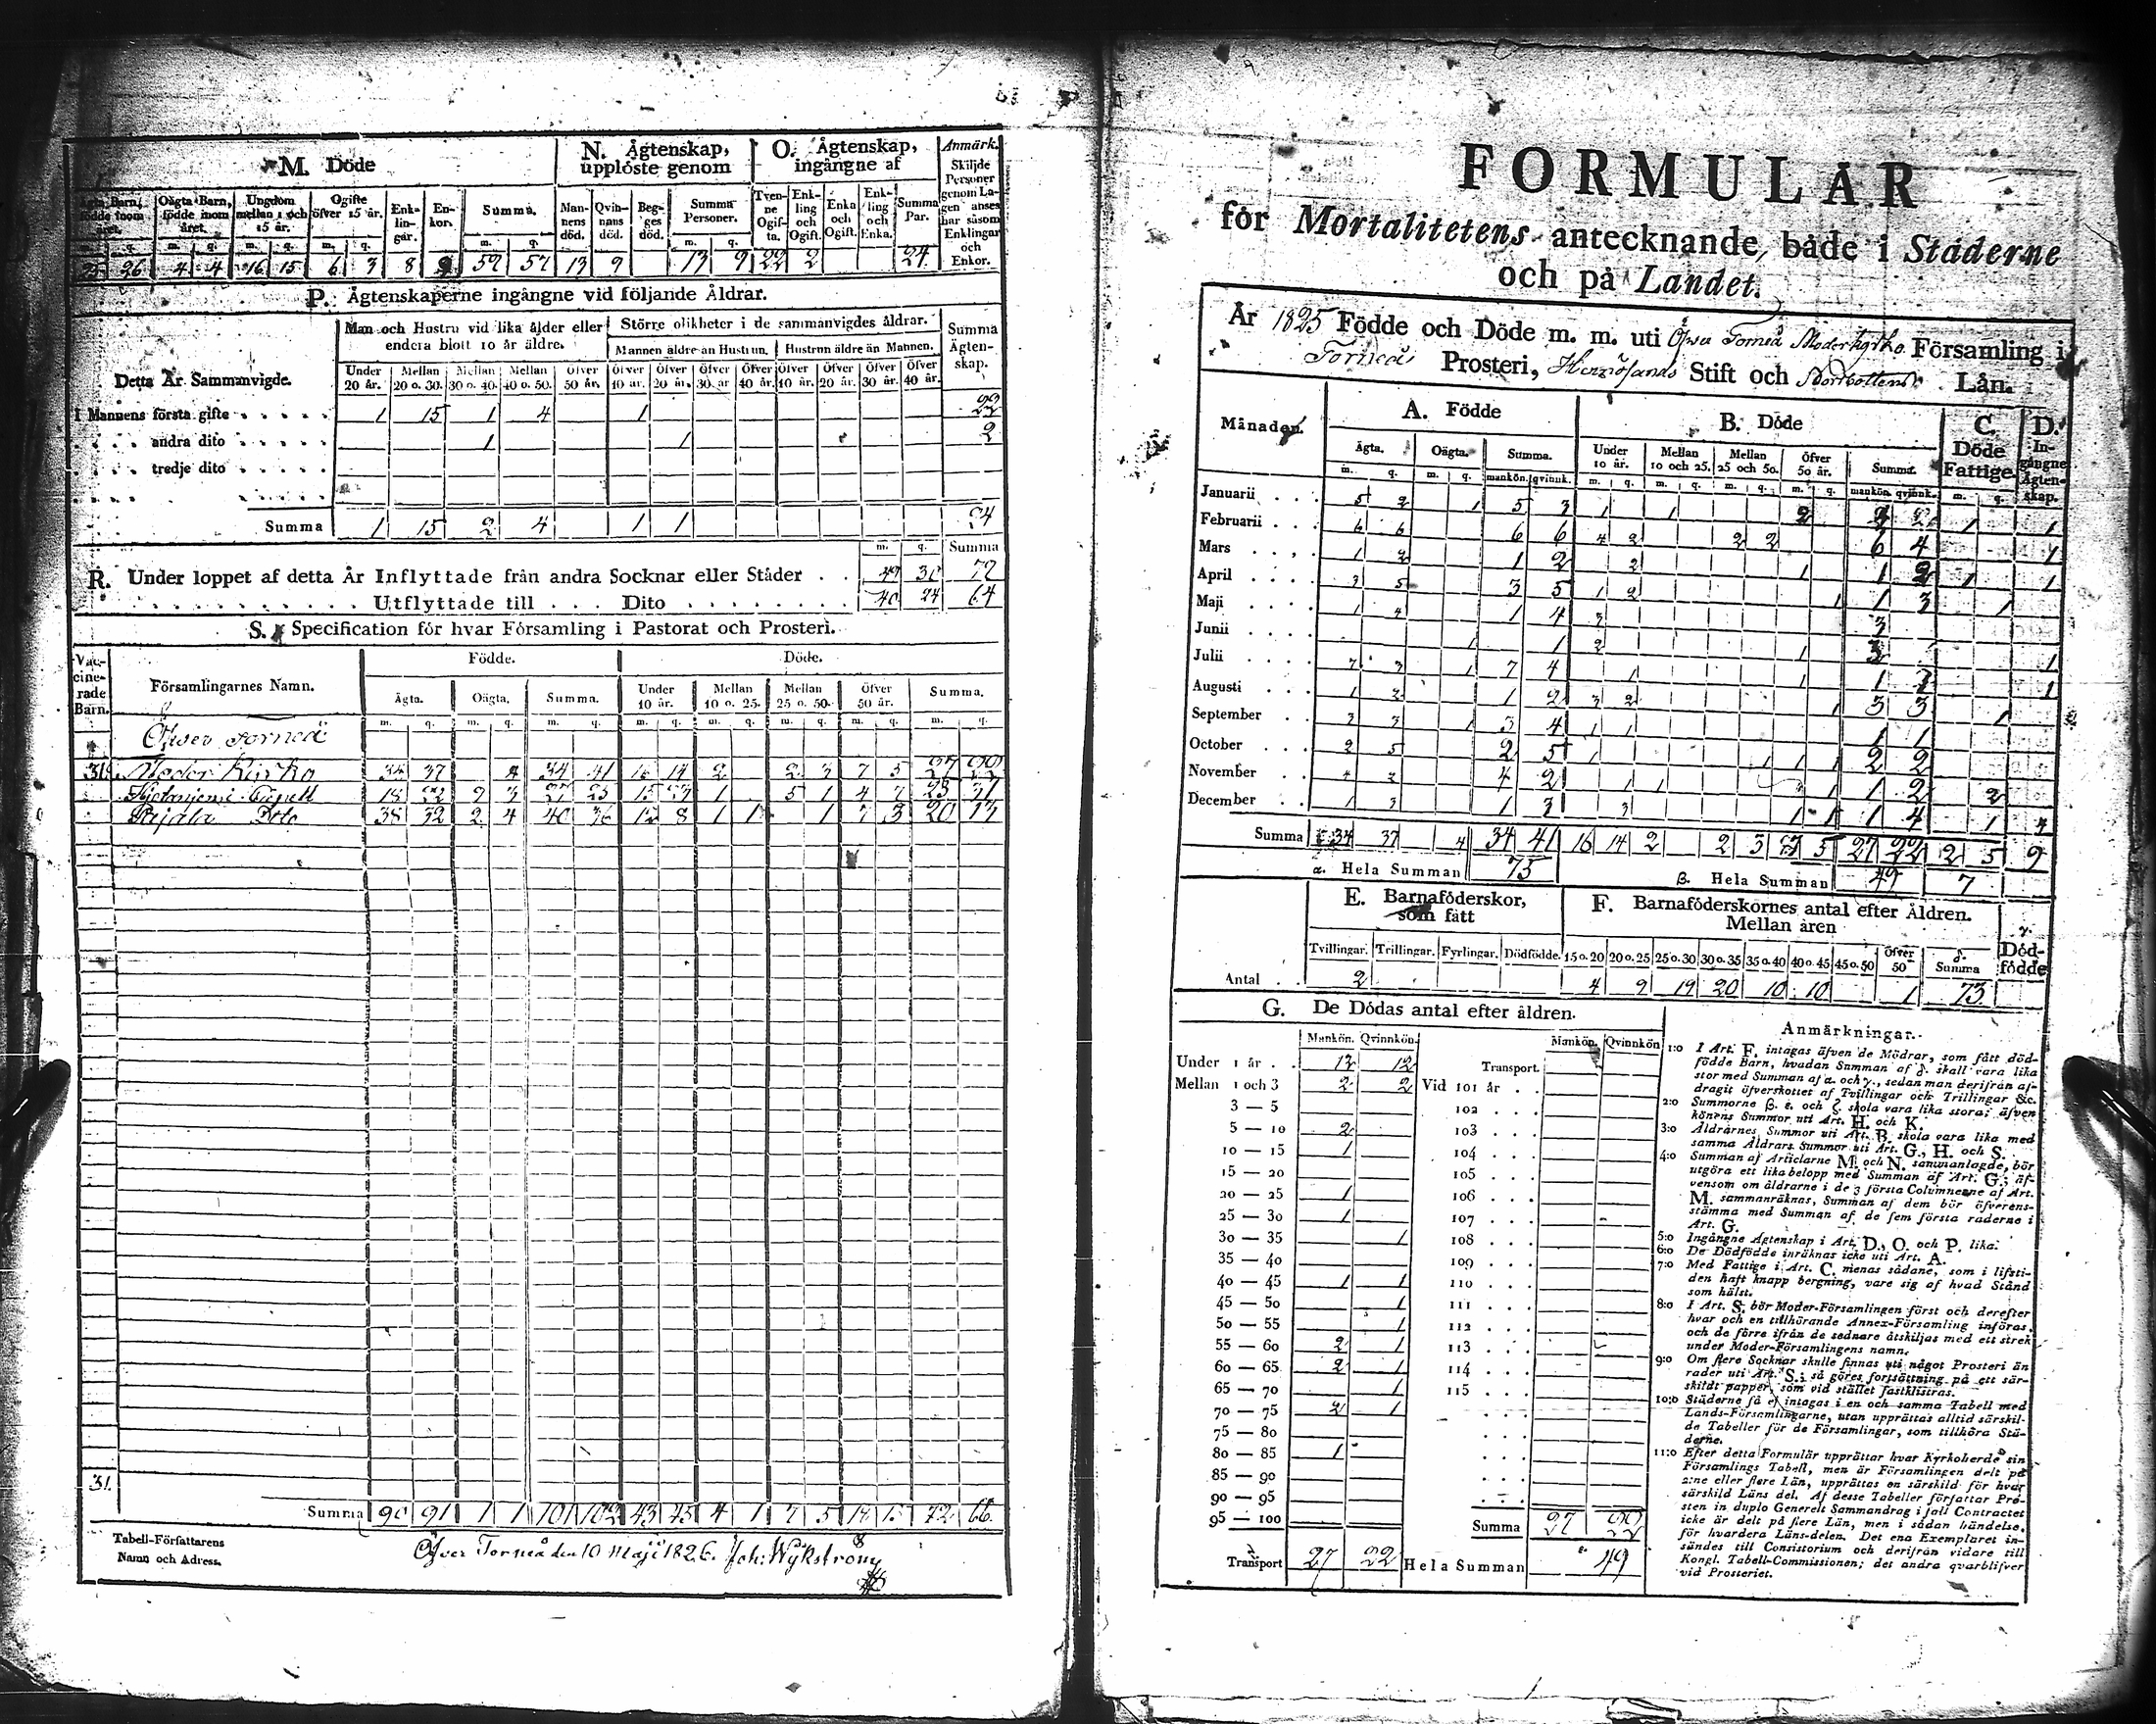 M. Döde
N. Ägtenskap, upplöste genom
O. Ägtenskap, ingångne af
Anmärk.
Skiljde Personer genom Lagen anses här såsom Enklingar och Enkor.
Oägta Barn, födde inom året.
Ungdom mellan 1 och 15 år.
Ogifte öfver 15 år.
Enklingar.
Enkor.
Summa.
Mannens död.
Qvinnans död.
Begges död.
Summa Personer.
Tvenne Ogifta.
Enkling och Ogift.
Enka och Ogift.
Enkling och Enka.
Summa Par.
26 4 4 16 15 6 3 8 9 59 57 13 9 13 9 22 2 24
P. Ägtenskaperne ingångne vid följande Åldrar.
Detta År Sammanvigde.
Man och Hustru vid lika ålder eller endera blott 10 år äldre.
Större olikheter i de sammanvigdes åldrar.
Summa Ägtenskap.
Mannen äldre än Hustrun.
Hustrun äldre än Mannen.
Under 20 år. Mellan 20 o. 30. Mellan 30 o. 40. Mellan 40 o. 50. Öfver 50 år. Öfver 10 år. Öfver 20 år. Öfver 30 år Öfver 40 år. Öfver 10 år. Öfver 20 år. Öfver 30 år Öfver 40 år.
I Mannens första gifte 1 15 1 4 1 22
andra dito 1 1 2
tredje dito
Summa 1 15 2 4 1 1 24
m. q. Summa
R. Under loppet af detta År Inflyttade från andra Socknar eller Städer
Utflyttade till . . . Dito 40 24 64
S. Specification för hvar Församling i Pastorat och Prosteri.
Vaccinerade Barn.
Församlingarnes Namn.
Födde.
Döde.
Ägta. Oägta. Summa. Under 10 år. Mellan 10 o. 25. Mellan 25 o. 50. Öfver 50 år. Summa.
m. q. m. q. m. q. m. q. m. q. m. q. m. q. m. q.
Öfver Torneå
31 Moder Kyrko 34 37 4 34 41 16 14 2 2 3 7 5 27 22
38 32 2 4 40 36 12 8 1 1 1 7 3 20 13
31
Summa
Tabell-Författarens Namn och Adress.
Öfver Torneå den 10 Maji 1826. Joh: Wykström
FORMULAR
för Mortalitetens antecknande, både i Städerne
och på Landet.
År 1825 Födde och Döde m. m. uti Öfver Torneå Moderkyrko Församling i
Torneå Prosteri, Hernösands Stift och Norrbottens Län.
Månader.
A. Födde
B. Döde
C. Döde Fattige.
D. Ingångne Ägtenskap.
Ägta. Oägta. Summa. Under 10 år. Mellan 10 och 25. Mellan 25 och 50. Öfver 50 år. Summa.
m. q. m. q. mankön. qvinnk. m. q. m. q. m. q. m. q. mankön. qvinnk. m. q.
Januarii 5 2 1 5 3
Februarii 6 6 6 6 4 2 2 2 6 4 1
Mars 1 2 1 2 2 1 1 2 1 1
April 3 5 3 5 1 2 1 1 3 1
Maji 1 4 1 4 3 3
Junii 1 1 2 1 3 1
Julii 7 3 1 7 4 1 1 1
Augusti 1 2 1 2 3 2 1 3 3 1
September 3 3 1 3 4 1 1 1 1
October 2 5 2 5 1 1 1 1 2 2
November 4 2 4 2 1 1 1 1 2 2
December 1 3 1 3 3 1 1 1 4 1
Summa 34 37 4 34 41 16 14 2 2 3 7 5 27 22 2 5 9
α. Hela Summan 75
β. Hela Summan 49 7
E. Barnaföderskor, som fått
F. Barnaföderskornes antal efter Åldren. Mellan åren
γ. Dödfödde
Tvillingar. Trillingar. Fyrlingar. Dödfödde. 15 o. 20 20 o. 25 25 o. 30 30 o. 35 35 o. 40 40 o. 45 45 o. 50 Öfver 50 δ. Summa
Antal 2 4 9 19 20 10 10 1 73
G. De Dödas antal efter åldren.
Mankön. Qvinnkön. Mankön. Qvinnkön
Under 1 år 12 Transport.
Mellan 1 och 3 2 2 Vid 101 år
3 — 5 102
5 — 10 2 103
10 — 15 1 104
15 — 20 105
20 — 25 1 106
25 — 30 1 107
30 — 35 1 108
35 — 40 109
40 — 45 1 1 110
45 — 50 1 111
50 — 55 1 112
55 — 60 2 1 113
60 — 65 2 1 114
65 — 70 1 115
70 — 75 2 1
75 — 80
80 — 85 1
85 — 90
90 — 95
95 — 100 Summa 27 22
Transport 27 22 Hela Summan 49
Anmärkningar.
1:o I Art. F. intagas äfven de Mödrar, som fått död-
födde Barn, hvadan Summan af δ. skall vara lika
stor med Summan af α. och γ., sedan man derifrån af-
dragit öfverskottet af Tvillingar och Trillingar &c.
2:o Summorne β. ε. och ζ. skola vara lika stora; äfven
könens Summor uti Art. H. och K.
3:o Åldrarnes Summor uti Art. B. skola vara lika med
samma Åldrars Summor uti Art. G., H. och S.
4:o Summan af Articlarne M. och N. sammanlagde, bör
utgöra ett lika belopp med Summan af Art. G.; äf-
vensom om åldrarne i de 3 första Columnerne af Art.
M. sammanräknas, Summan af dem bör öfverens-
stämma med Summan af de fem första raderne i
Art. G.
5:o Ingångne Ägtenskap i Art. D., O. och P. lika.
6:o De Dödfödde inräknas icke uti Art. A.
7:o Med Fattige i Art. C. menas sådane, som i lifsti-
den haft knapp bergning, vare sig af hvad Stånd
som hälst.
8:o I Art. S. bör Moder-Församlingen först och derefter
hvar och en tillhörande Annex-Församling införas,
och de förre ifrån de sednare åtskiljas med ett strek
under Moder-Församlingens namn.
9:o Om flere Socknar skulle finnas uti något Prosteri än
rader uti Art. S.; så göres fortsättning på ett sär-
skildt papper, som vid stället fastklistras.
10:o Städerne få ej intagas i en och samma Tabell med
Lands-Församlingarne, utan upprättas alltid särskil-
de Tabeller för de Församlingar, som tillhöra Stä-
derne.
11:o Efter detta Formulär upprättar hvar Kyrkoherde sin
Församlings Tabell, men är Församlingen delt på
2:ne eller flere Län, upprättas en särskild för hvar
särskild Läns del. Af desse Tabeller författar Pro-
sten in duplo Generelt Sammandrag i fall Contractet
icke är delt på flere Län, men i sådan händelse,
för hvardera Läns-delen. Det ena Exemplaret in-
sändes till Consistorium och derifrån vidare till
Kongl. Tabell-Commissionen; det andra qvarblifver
vid Prosteriet.